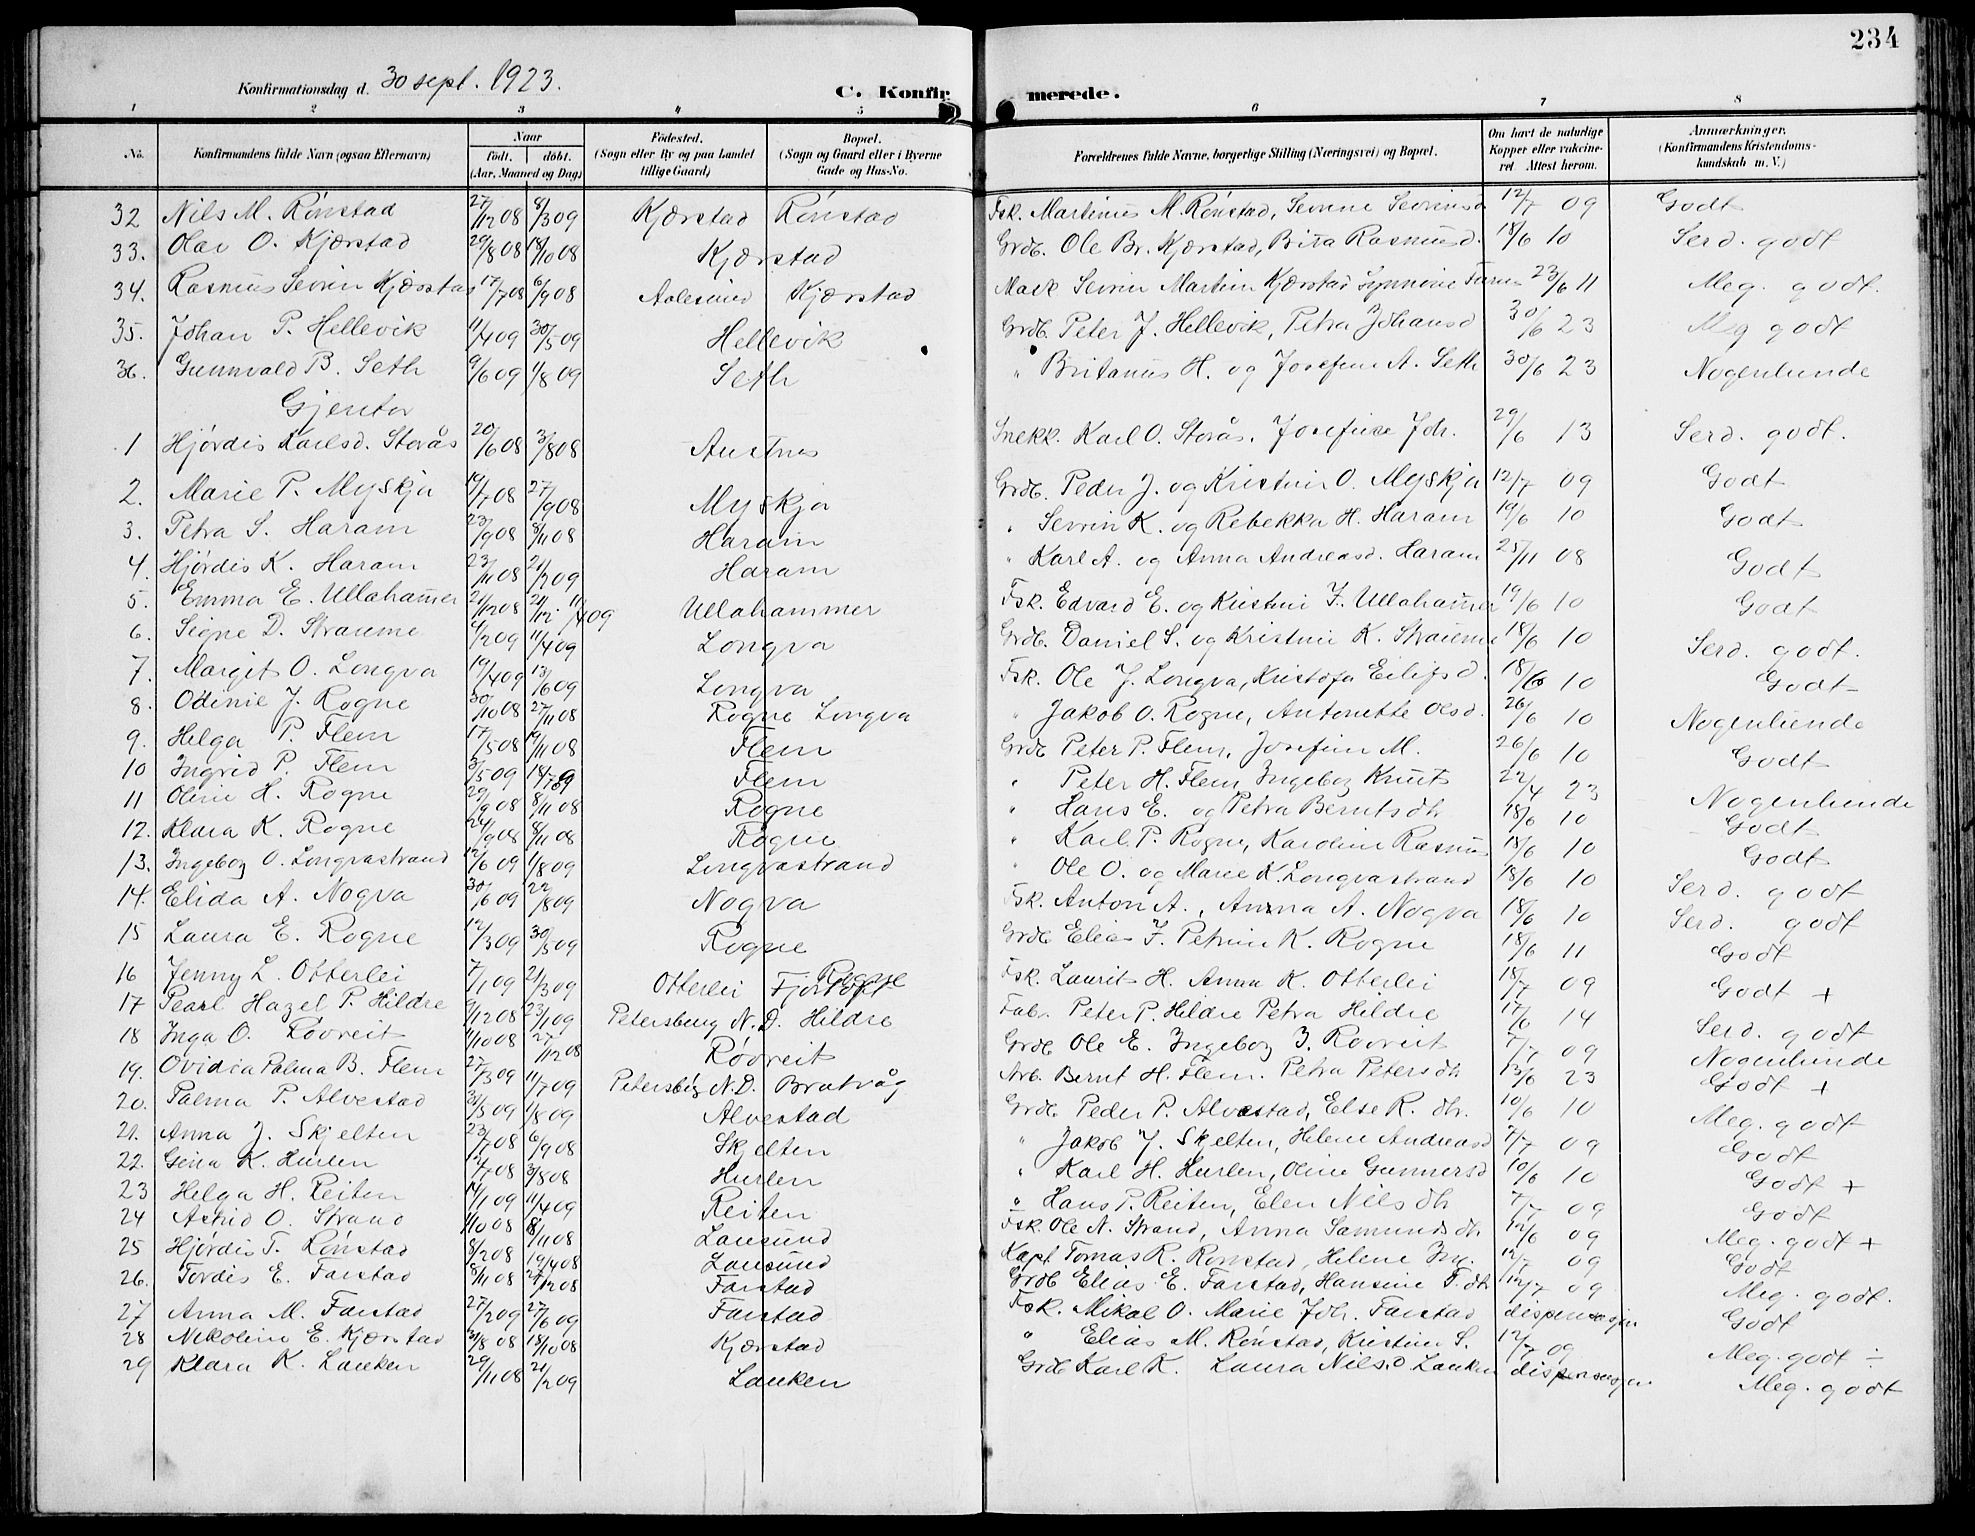 234
Konfirmationsdag d. 30 sept. 1923.
C. Konfirmerede.
1 2 3 4 5 6 7 8
No. Konfirmandens fulde Navn (ogsaa Efternavn) Naar født. døbt. (Aar, Maaned og Dag) Fødested. (Sogn eller By og paa Landet tillige Gaard) Bopæl. (Sogn og Gaard eller i Byerne Gade og Hus-No. Forældrenes fulde Navne, borgerlige Stilling (Næringsvei) og Bopæl. Om havt de naturlige Kopper eller vakcineret. Attest herom. Anmærkninger. (Konfirmandens Kristendomskundskab m. V.)
32 Nils M. Rønstad 27/12 08 8/3 09 Kjærstad Rönstad Fsk. Martinus M. Rønstad, Sevrine Sevrinsd 12/7 09 Godt
33. Olav O. Kjærstad 29/8 08 18/10 08 Kjærstad Grdb. Ole Br. Kjærstad, Brita Rasmusd. 18/6 10 Serd. godt
34. Rasmus Sevrin Kjærstad 17/7 08 6/9 08 Aalesund Kjærstad Sevrin Martin Kjærstad Synnøve 23/6 11 Meg. godt.
35. Johan P. Hellevik 11/4 09 30/5 09 Hellevik Grdb. Peter J. Hellevik, Petra Johansd 30/6 23 Meg godt
36. Gunnvald B. Seth 9/6 09 1/8 09 Seth " Britanus H. og Josefine A. Seth 30/6 23 Nogenlunde
Gjenter
1 Hjørdis Karlsd. Storås 20/6 08 3/8 08 Austnes Snekk. Karl O. Storås. Josefine Joh. 29/6 13 Serd. godt.
2. Marie P. Myskja 19/7 08 27/9 08 Myskja Grdb. Peder J. og Kristine O. Myskja 12/7 09 Godt
3. Petra S. Haram 23/9 08 8/11 08 Haram " Sevrin K. og Rebekka H. Haram 19/6 10 Godt
4. Hjørdis K. Haram 23/11 08 21/2 09 Haram " Karl A. og Anna Andreasd. Haram 25/11 08 Godt
5. Emma E. Ullahammer 21/12 08 21/12 11/4 09 Ullahammer Fsk. Edvard E. og Kristine J. Ullahammer 19/6 10 Godt
6. Signe D. Straume 4/2 09 11/4 09 Longva Grdb. Daniel S. og Kristine K. Straume 18/6 10 Serd. godt.
7. Margit O. Longva 19/4 09 13/6 09 Longva Fsk. Ole J. Longva, Kristofa Eilifsd. 18/6 10 Godt
8. Odinie J. Rogne 30/10 08 27/11 08 Rogne Longva " Jakob O. Rogne, Antonette Olsd. 26/6 10 Nogenlunde
9. Helga P. Flem 17/5 08 19/11 08 Flem Grdb Peter P. Flem, Josefine M. 26/6 10 Godt
10 Ingrid P. Flem 3/5 09 18/7 09 Flem " Peter H. Flem, Ingeborg Knuts 22/4 23 Nogenlunde
11 Oline H. Rogne 29/9 08 8/11 08 Rogne " Hans E. og Petra Berntsdtr 18/6 10 Godt
12. Klara K. Rogne 24/9 08 8/11 08 Rogne " Karl P. Rogne, Karoline Rasmus 18/6 10 Godt
13. Ingeborg O. Longvastrand 12/6 09 1/8 09 Longvastrand " Ole O. og Marie K. Longvastrand 18/6 10 Serd. godt
14. Elida A. Nogva 30/6 09 22/8 09 Nogva Fsk. Anton A., Anna A. Nogva 18/6 10 Serd. godt
15 Laura E. Rogne 12/3 09 30/5 09 Rogne Grdb Elias J. Petrine K. Rogne 18/6 11 Godt
16 Jenny L. Otterlei 7/1 09 21/3 09 Otterlei Fjørtoft Rogne Fsk. Laurits H. Anna K. Otterlei 18/7 09 Godt +
17 Pearl Hazel P. Hildre 9/12 08 23/1 09 Petersberg N.D. Hildre Fabr. Peter P. Hildre Petra Hildre 17/6 14 Serd. godt
18 Inga O. Røvreit 11/10 08 27/12 08 Rövreit Grdb Ole E. Ingeborg J. Rovreit 7/7 09 Nogenlunde
19. Ovidia Palma B. Flem 27/3 09 11/7 09 Petersbrg N.D. Bratvåg Arb. Bernt H. Flem. Petra Petersdtr 13/6 23 Godt +
20. Palma P. Alvestad 31/5 09 1/8 09 Alvestad Grdb Peder P. Alvestad, Else R. dtr. 10/6 10 Meg. godt
21. Anna J. Skjelten 23/7 08 6/9 08 Skjelten " Jakob J. Skjelten, Helene Andreasd 7/7 09 Godt
22. Gina K. Hurlen 12/7 08 3/8 08 Hurlen " Karl H. Hurlen, Oline Gunnersd 10/6 10 Godt +
23 Helga H. Reiten 14/1 09 11/4 09 Reiten " Hans P. Reiten, Elen Nilsdtr 7/7 09 Godt
24 Astrid O. Strand 1/10 08 8/11 08 Lausund Fsk. Ole N. Strand, Anna Samundsdtr 12/6 09 Meg. godt +
25 Hjørdis T. Rönstad 8/2 08 19/4 08 Lausund Kapt Tomas R. Rønstad, Helene 12/7 09 Godt
26. Tordis E. Farstad 8/11 08 27/12 08 Farstad Grdb Elias E. Farstad, Hansine F. dtr 12/7 09 Meg. godt.
27 Anna M. Farstad 27/2 09 27/6 09 Farstad Fsk. Mikal O. Marie Joh. Farstad dispensasjon Godt
28 Nikoline E. Kjærstad 31/8 08 18/10 08 Kjærstad " Elias M. Rønstad, Kristine S. 12/7 09 Meg. godt ÷
29 Klara K. Lauken 29/11 08 21/2 09 Lauken Grdb Karl K. Laura Nilsd Lauken dispensasjon Meg. godt